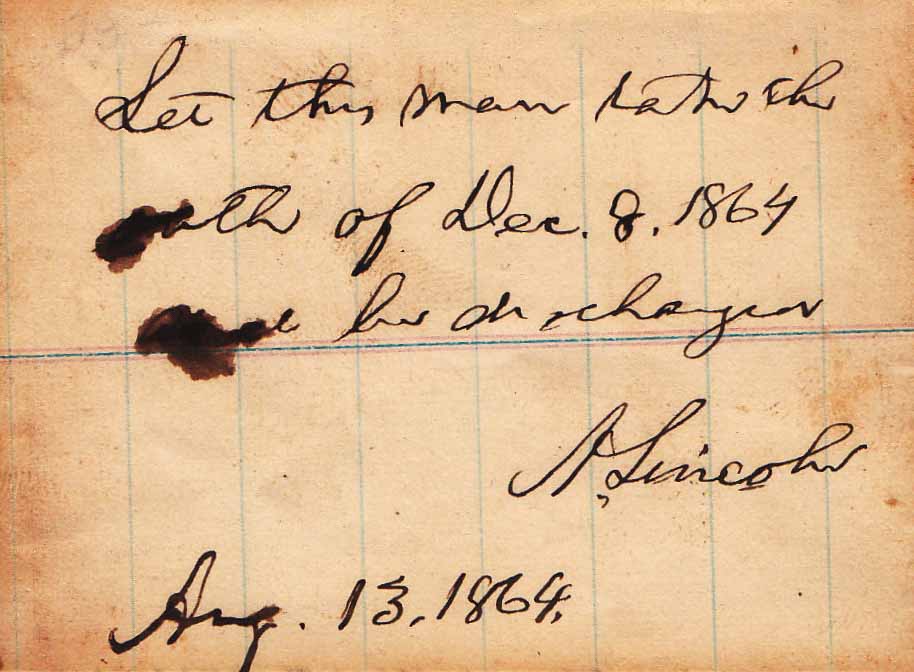 Let this man take the
oath of Dec. 8. 1864
be discharged
A. Lincoln
Aug. 13, 1864.